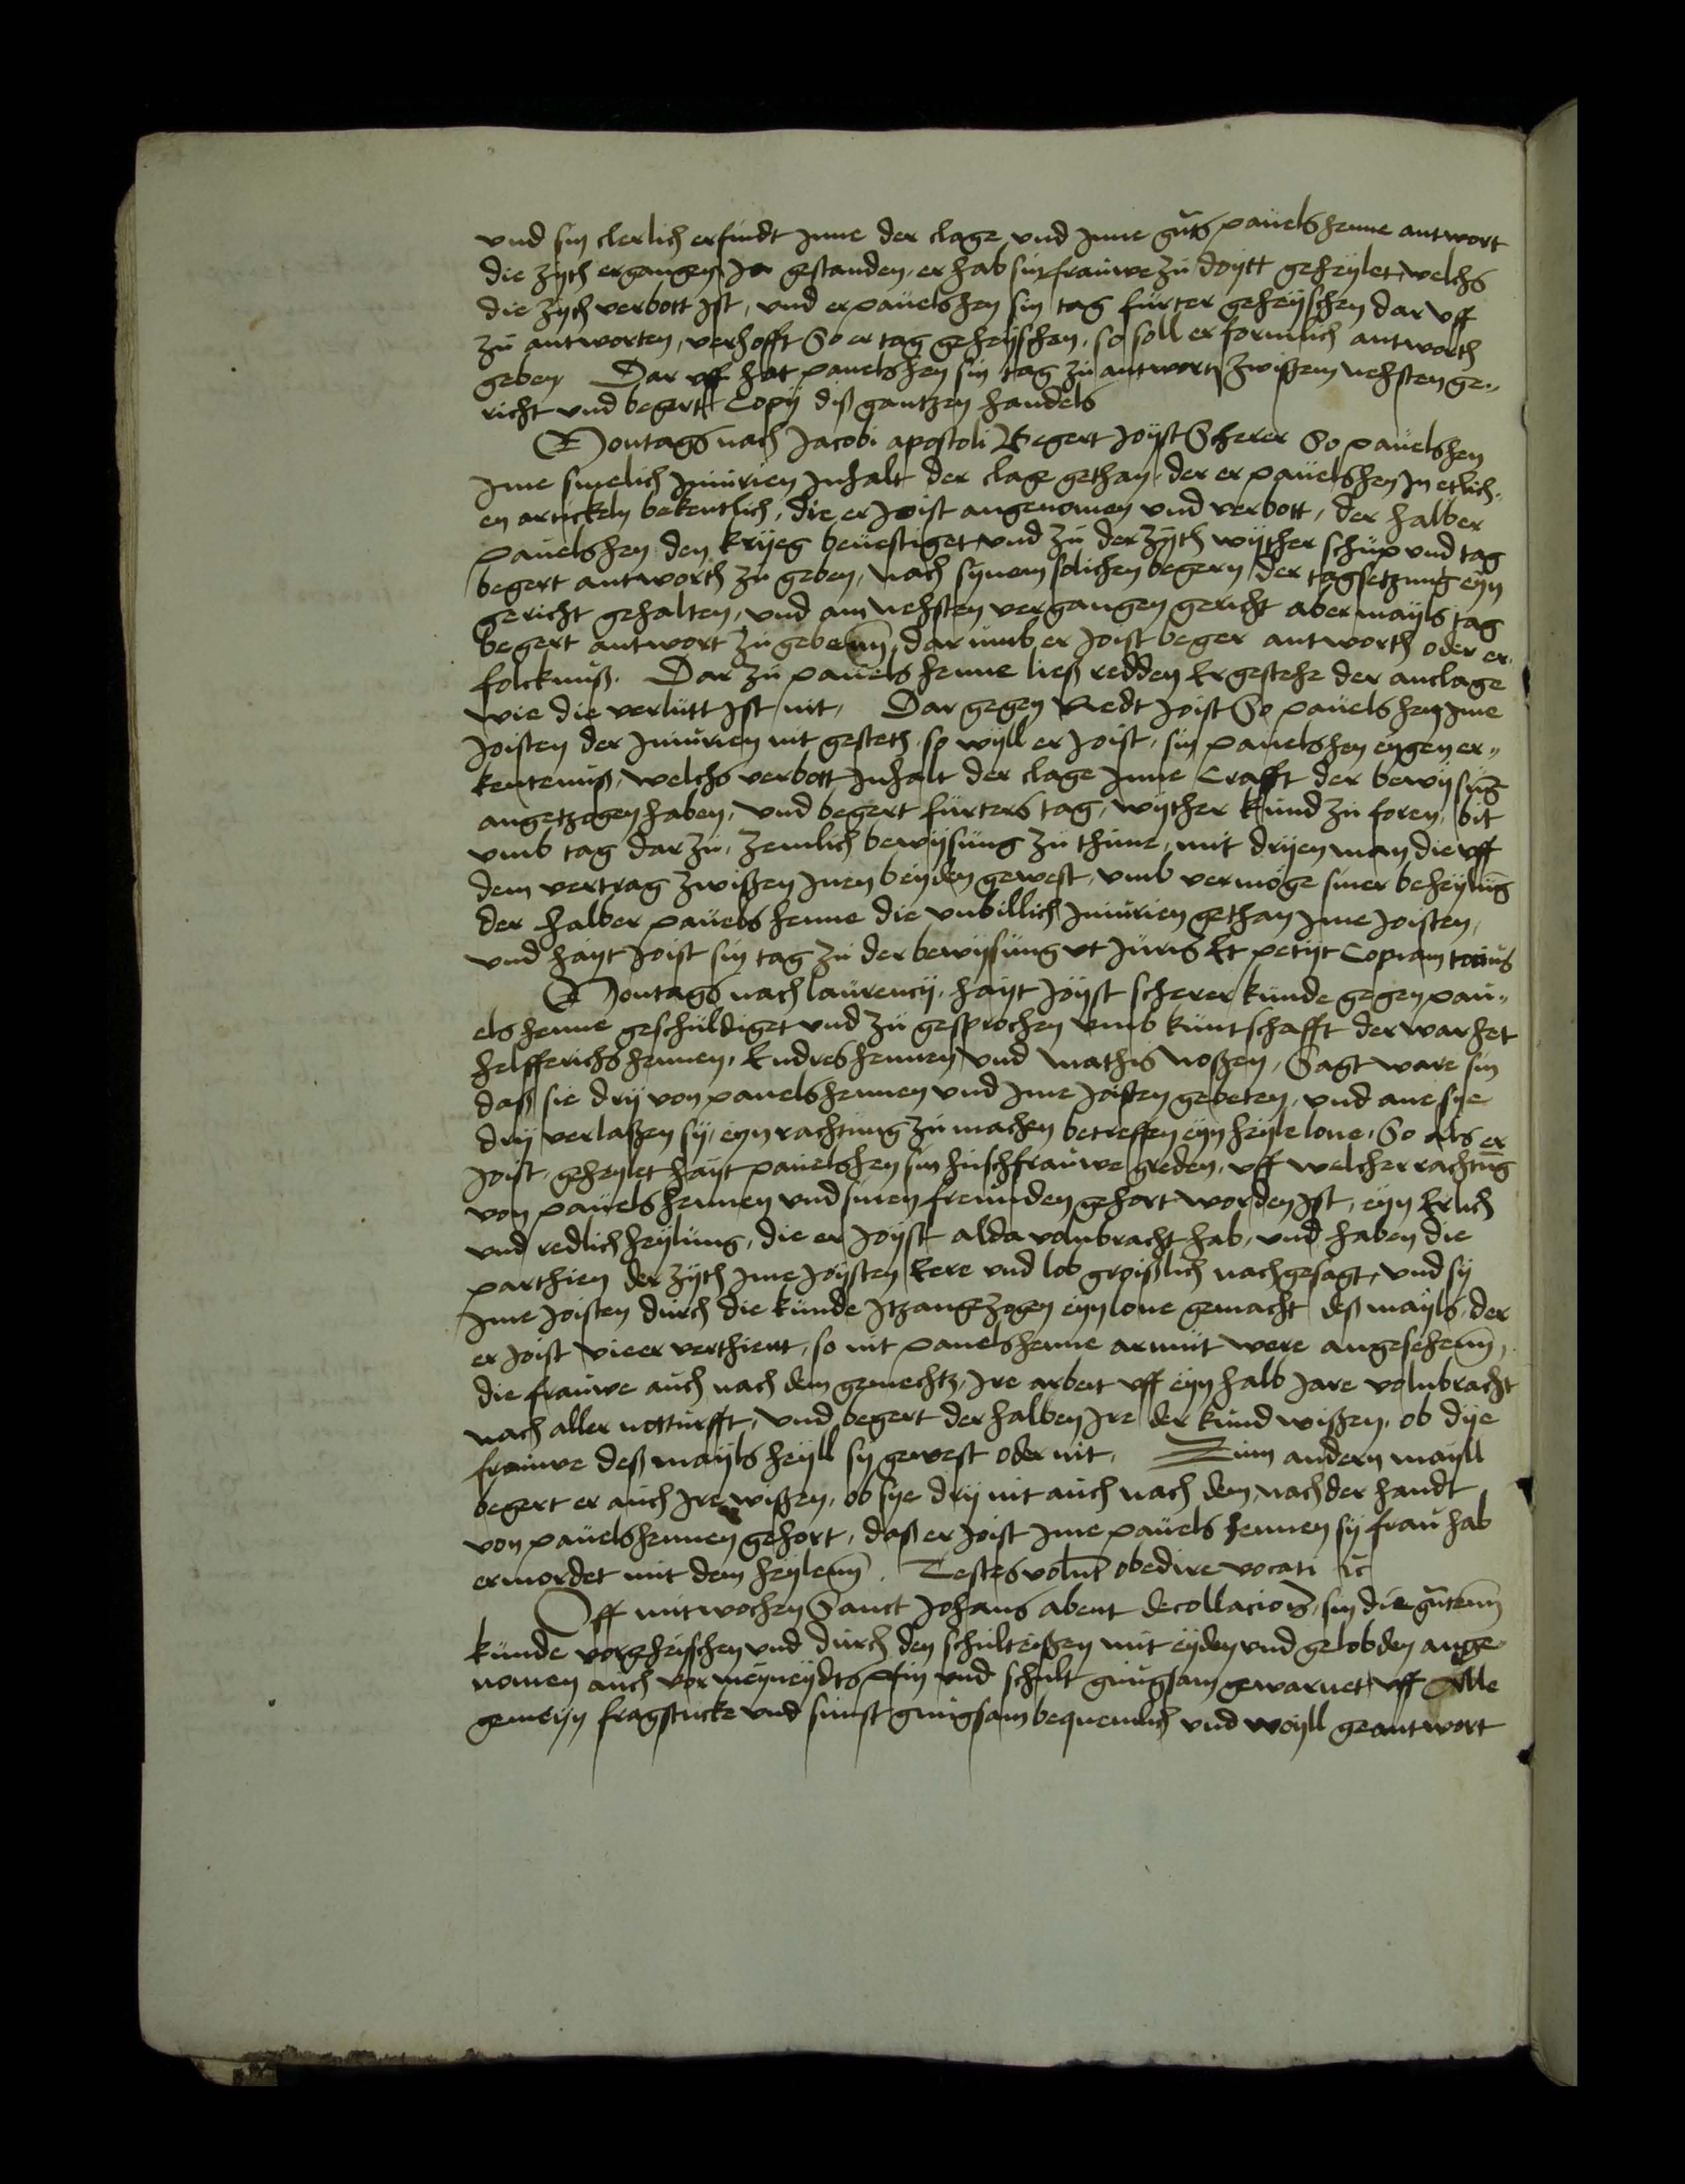 vnd sin clerlich erfindt jnne der clage vnd jnne guts pauels henne antwort
die zyth ergangen Ja gestanden, er hab sin frauwe zu doytt geheylet, welchs
die zyth verbott jst, vnd er pauelshen sin tag furter geheyschen dar vff
zu antworten, verhofft So er tag geheyschen, so soll er formlich antworth
geben Dar vff hat pauelshen sin tag zu antworten zwißem nehsten ge-
richt vnd begert Copy diß gantzen handels
Montags nach Jacobi apostoli Begert Joyst Scherer So pauelshen
jme smelich Jniurien jnhalt der clage gethan, der er pauelshen jn etlich-
en artickeln bekentlich, die er Joist angenomen vnd verbott, der halber
pauelshen den krijeg beuestiget vnd zu der zyth wyther schup vnd tag
begert antworth zu geben, nach synem solichen begern der tagsetzung eyn
gericht gehalten, vnd am nehsten vergangen gericht abermayls tag
begert antwort zu gebenn, dar umb er Joist beger antworth oder er-
folckniß. Dar zu pauels henne ließ redden Er gestehe der anclage
wie die verlutt jst nit, Dar gegen Redt Joist So pauelshen jme
Joisten der Jniurien nit gesteth, so wyll er Joist, sin pauelshen eygen er-
kenteniß, welchs verbott jnhalt der clage jnne Crafft der bewysung
angetzogen haben, vnd begert furters tag, wyther kund zu foren, bit
vmb tag dar zu, zemlich bewysung zu thune, mit dryen man die vff
dem vertrag zwißen jnen beyden gewest, vmb vermoge siner beheylung
der halber pauels henne die vnbillich Jniurien gethan jme Joisten,
vnd hayt Joist sin tag zu der bewysung vt Juris Et petijt Copiam totius
Montags nach laurencij, hayt Joyst scherer kunde gegen pau-
els henne geschuldiget vnd zu gesprochen vmb kuntschafft der warhet
helfferichs hennen, Endres hennen vnd mathis noßen, Sagt ware sin
daß sie dry von pauels hennen vnd jme Joisten gebeten, vnd ane sye
dry verlaßen sy, eyn rachtung zu machen betreffen eyn heyle lone, So als er
Joist, geheylet hayt pauelshen sin huschfrauwe greden, vff welcher rachtung
von pauels hennen vnd sinen freunden gehort worden jst, eyn Erlich
vnd redlich heylung, die er Joyst alda volnbracht hab, vnd haben die
parthien der zyth jme Joysten Eere vnd lob groißlich nachgesagt, vnd sy
jme Joisten durch die kunde jtzangezogen eyn lone gemacht deß mayls, der
er Joist vieer verthient, so nit pauels henne armut were angesehenn,
die frauwe auch nach dem gemechtz, jre arbeit vff eyn halb Jare volnbracht
nach aller notturfft, vnd begert der halben jre der kund wißen, ob dye
frauwe deß mayls heyll sy gewest oder nit, Zum andern mayll
begert er auch jre wißen, ob sye dry nit auch nach dem, nach der handt
von pauelshennen gehort, daß er Joist jme pauels hennen sy frau hab
ermordet mit dem heylenn. Testes volunt obedire vocati ic
Vff mitwochen Sanct Johans abent decollacionis, sin die gutenn
kunde vorgeheischen vnd durch den schulteißen mit eyden vnd gelobden ange-
nomen auch vor meyneydts pin vnd schult gnugsam gewarnet, vff Alle
gemeyn fragstucke vnd sunst gnugsam bequemlich vnd woyll geantwort